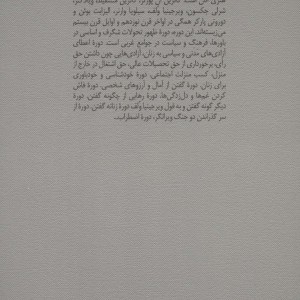 شرلی جکسون، ویرجینیا وولف، سیلویا وارنر، الیزابت بوئن و
دوروتی پارکر همگی در اواخر قرن نوزدهم و اوایل قرن بیستم
می‌زیسته‌اند. این دوره، دورهٔ ظهور تحولات شگرف و اساسی در
باورها، فرهنگ و سیاست در جوامع غربی است. دورهٔ اعطای
آزادی‌های مدنی و سیاسی به زنان، آزادی‌هایی چون داشتن حق
رأی، برخورداری از حق تحصیلات عالی، حق اشتغال در خارج از
منزل، کسب منزلت اجتماعی. دورهٔ خودشناسی و خودباوری
برای زنان. دورهٔ گفتن از آمال و آرزوهای شخصی. دورهٔ فاش
کردن غم‌ها و دل‌زدگی‌ها. دورهٔ رهایی از چگونه گفتن. دورهٔ
دیگر گونه گفتن و به قول ویرجینیا وولف دورهٔ زنانه گفتن. دورهٔ از
سر گذراندن دو جنگ ویرانگر، دورهٔ اضطراب.